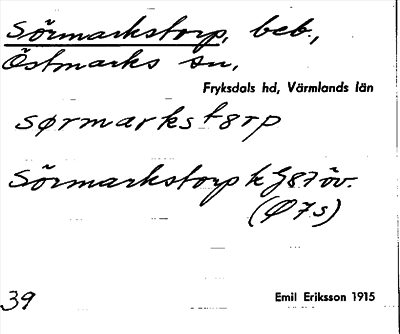 Sörmarkstorp, beb.,
Östmarks sn,
Fryksdals hd, Värmlands län
sørmarkst8rp
Sörmarkstorp k J87 öv.
(Ø7s)
39
Emil Eriksson 1915